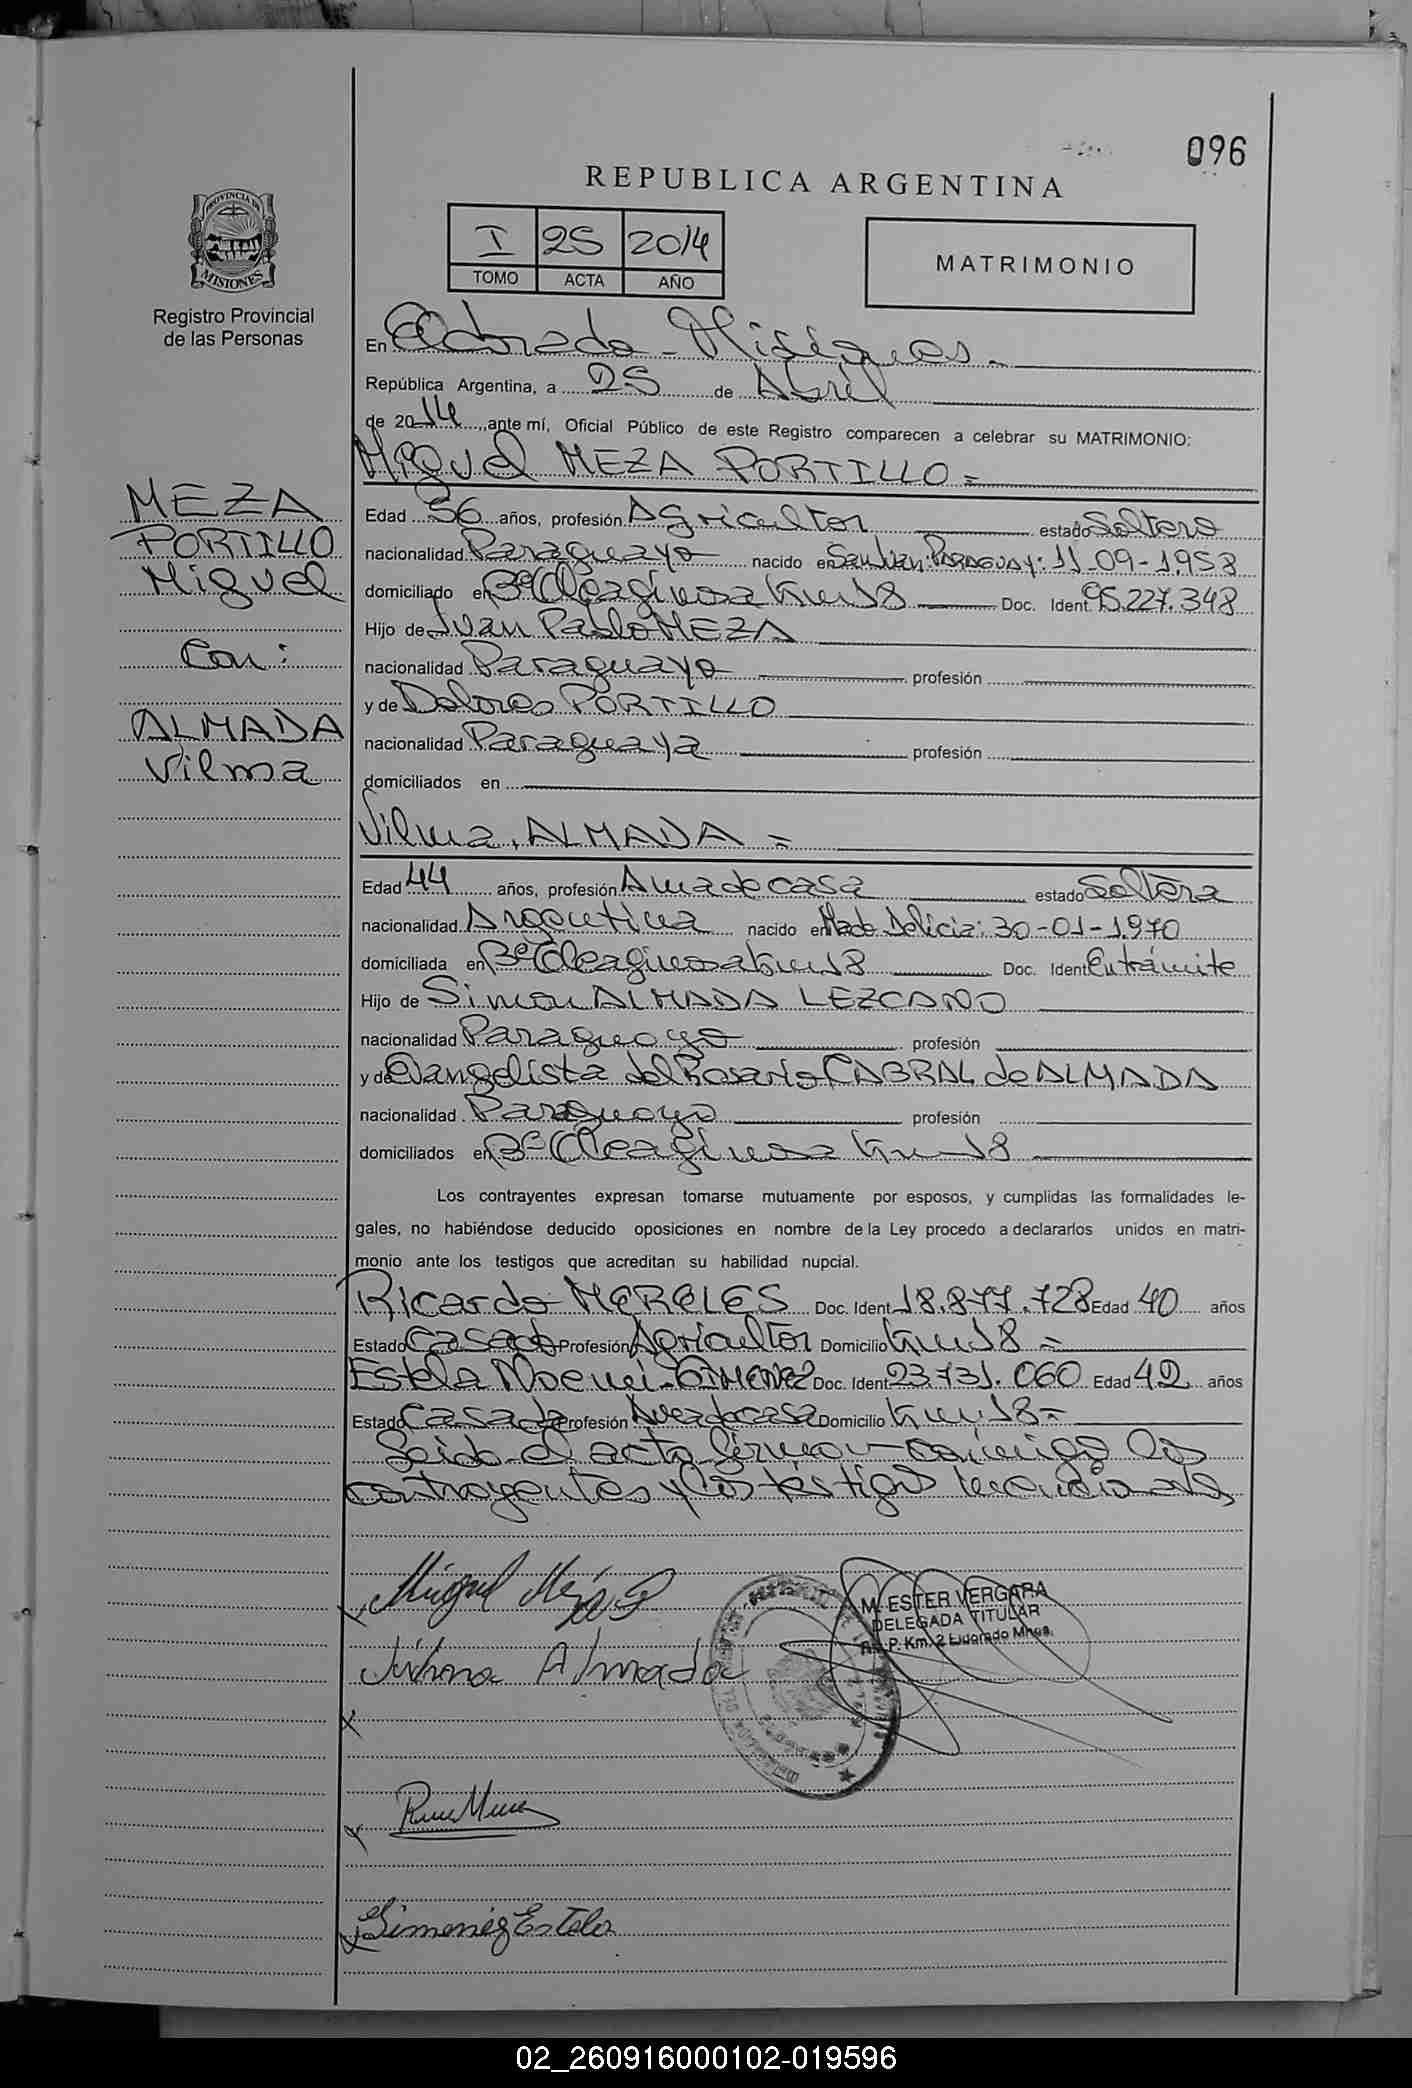 096
REPUBLICA ARGENTINA
I 25 2014
TOMO ACTA AÑO
MATRIMONIO
PROVINCIA DE
MISIONES
Registro Provincial
de las Personas
En Eldorado - Misiones.-
República Argentina, a 25 de Abril
de 2014, ante mí, Oficial Público de este Registro comparecen a celebrar su MATRIMONIO:
Miguel MEZA PORTILLO =
MEZA
PORTILLO
Miguel
Con:
ALMADA
Vilma
Edad 56 años, profesión Agricultor estado Soltero
nacionalidad Paraguayo nacido en San Juan: PARAGUAY: 11-09-1.958
domiciliado en Bº Oleaginosa Km 18 Doc. Ident. 95.227.348
Hijo de Juan Pablo MEZA
nacionalidad Paraguayo profesión
y de Dolores PORTILLO
nacionalidad Paraguaya profesión
domiciliados en
Vilma, ALMADA =
Edad 44 años, profesión Ama de casa estado Soltera
nacionalidad Argentina nacido en Mado Delicia: 30-01-1.970
domiciliada en Bº Oleaginosa Km 18 Doc. Ident. En trámite
Hijo de Simon ALMADA LEZCANO
nacionalidad Paraguayo profesión
y de Evangelista del Rosario CABRAL de ALMADA
nacionalidad Paraguayo profesión
domiciliados en Bº Oleaginosa Km 18
Los contrayentes expresan tomarse mutuamente por esposos, y cumplidas las formalidades le-
gales, no habiéndose deducido oposiciones en nombre de la Ley procedo a declararlos unidos en matri-
monio ante los testigos que acreditan su habilidad nupcial.
Ricardo MERELES Doc. Ident. 18.877.728 Edad 40 años
Estado Casado Profesión Agricultor Domicilio Km 18 =
Estela Noemi GIMENEZ Doc. Ident. 23.731.060 Edad 42 años
Estado Casada Profesión Ama de casa Domicilio Km 18 =
Leido el acta firman conmigo los
contrayentes y los testigos
Miguel Meza P
Vilma Almada
M. ESTER VERGARA
DELEGADA TITULAR
R. P. Km. 2 Eldorado Mnes.
Gimenez Estela
02_260916000102-019596